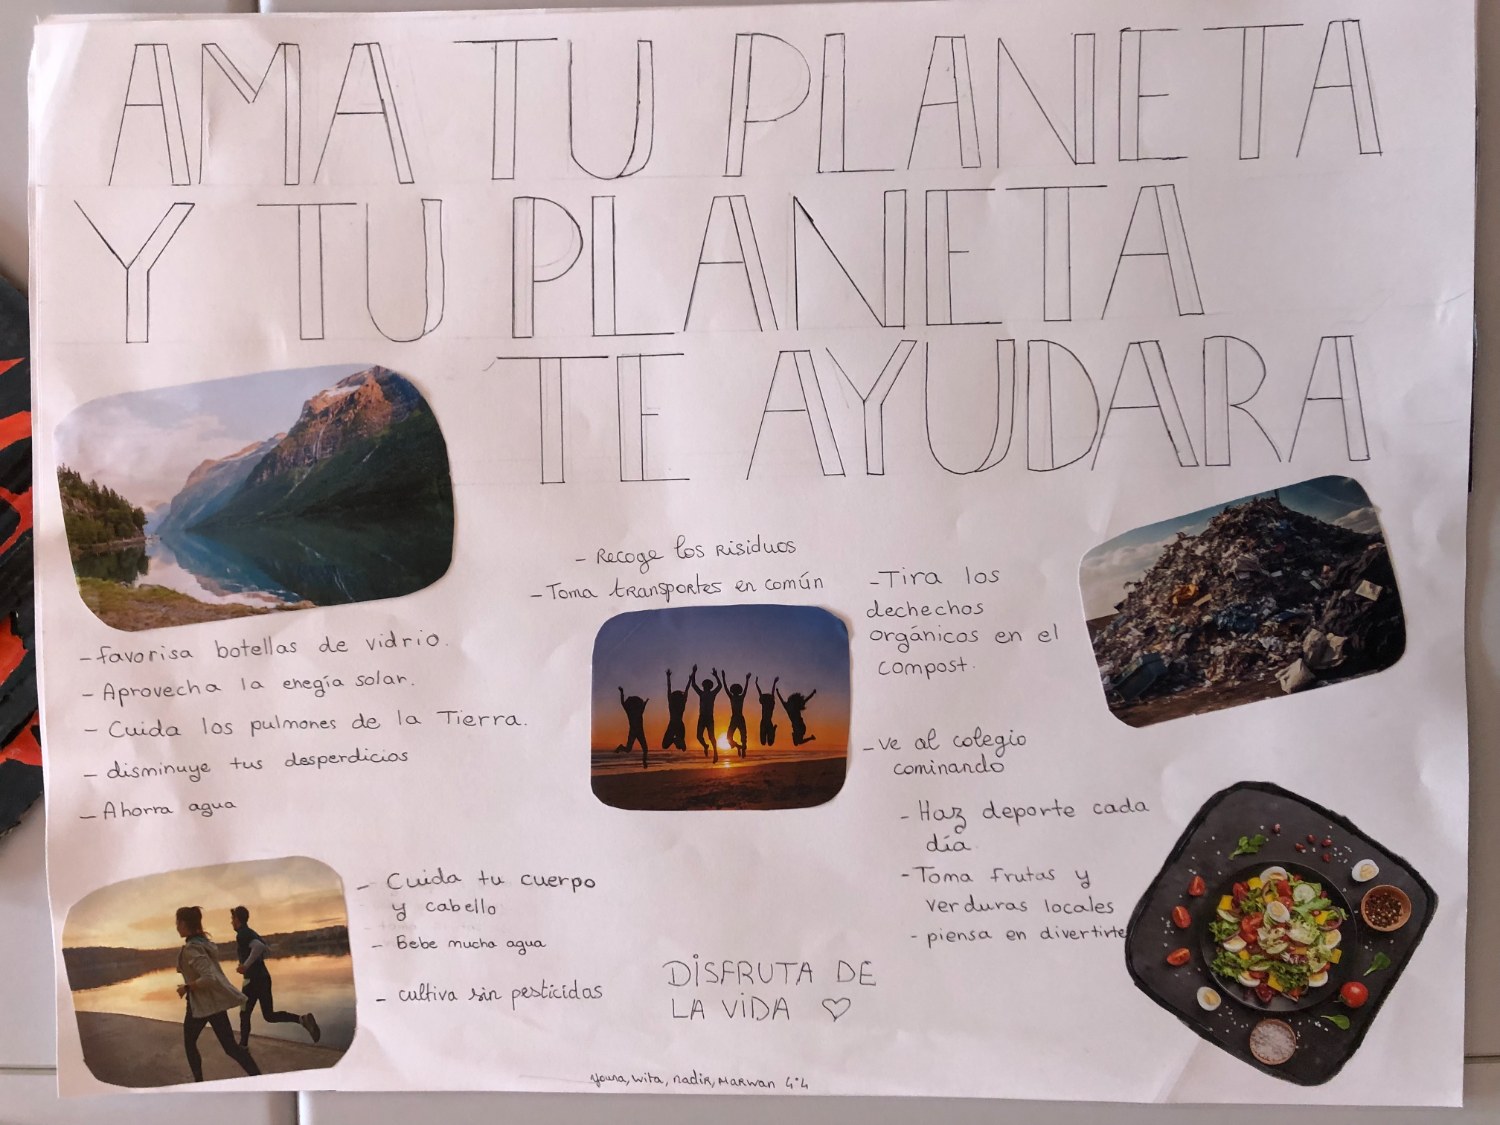 AMA TU PLANETA
Y TU PLANETA
TE AYUDARA
- Recoge los risiduos
- Toma transportes en común
- favorisa botellas de vidrio.
- Aprovecha la enegía solar.
- Cuida los pulmones de la Tierra.
- disminuye tus desperdicios
- Ahorra agua
- Tira los
dechechos
orgánicos en el
compost.
- ve al colegio
cominando
- Haz deporte cada
día.
- Toma frutas y
verduras locales
- piensa en divertirte
- Cuida tu cuerpo
y cabello
- Bebe mucha agua
- cultiva sin pesticidas
DISFRUTA DE
LA VIDA ♡
Youna, wita, nadir, Marwan 4°4